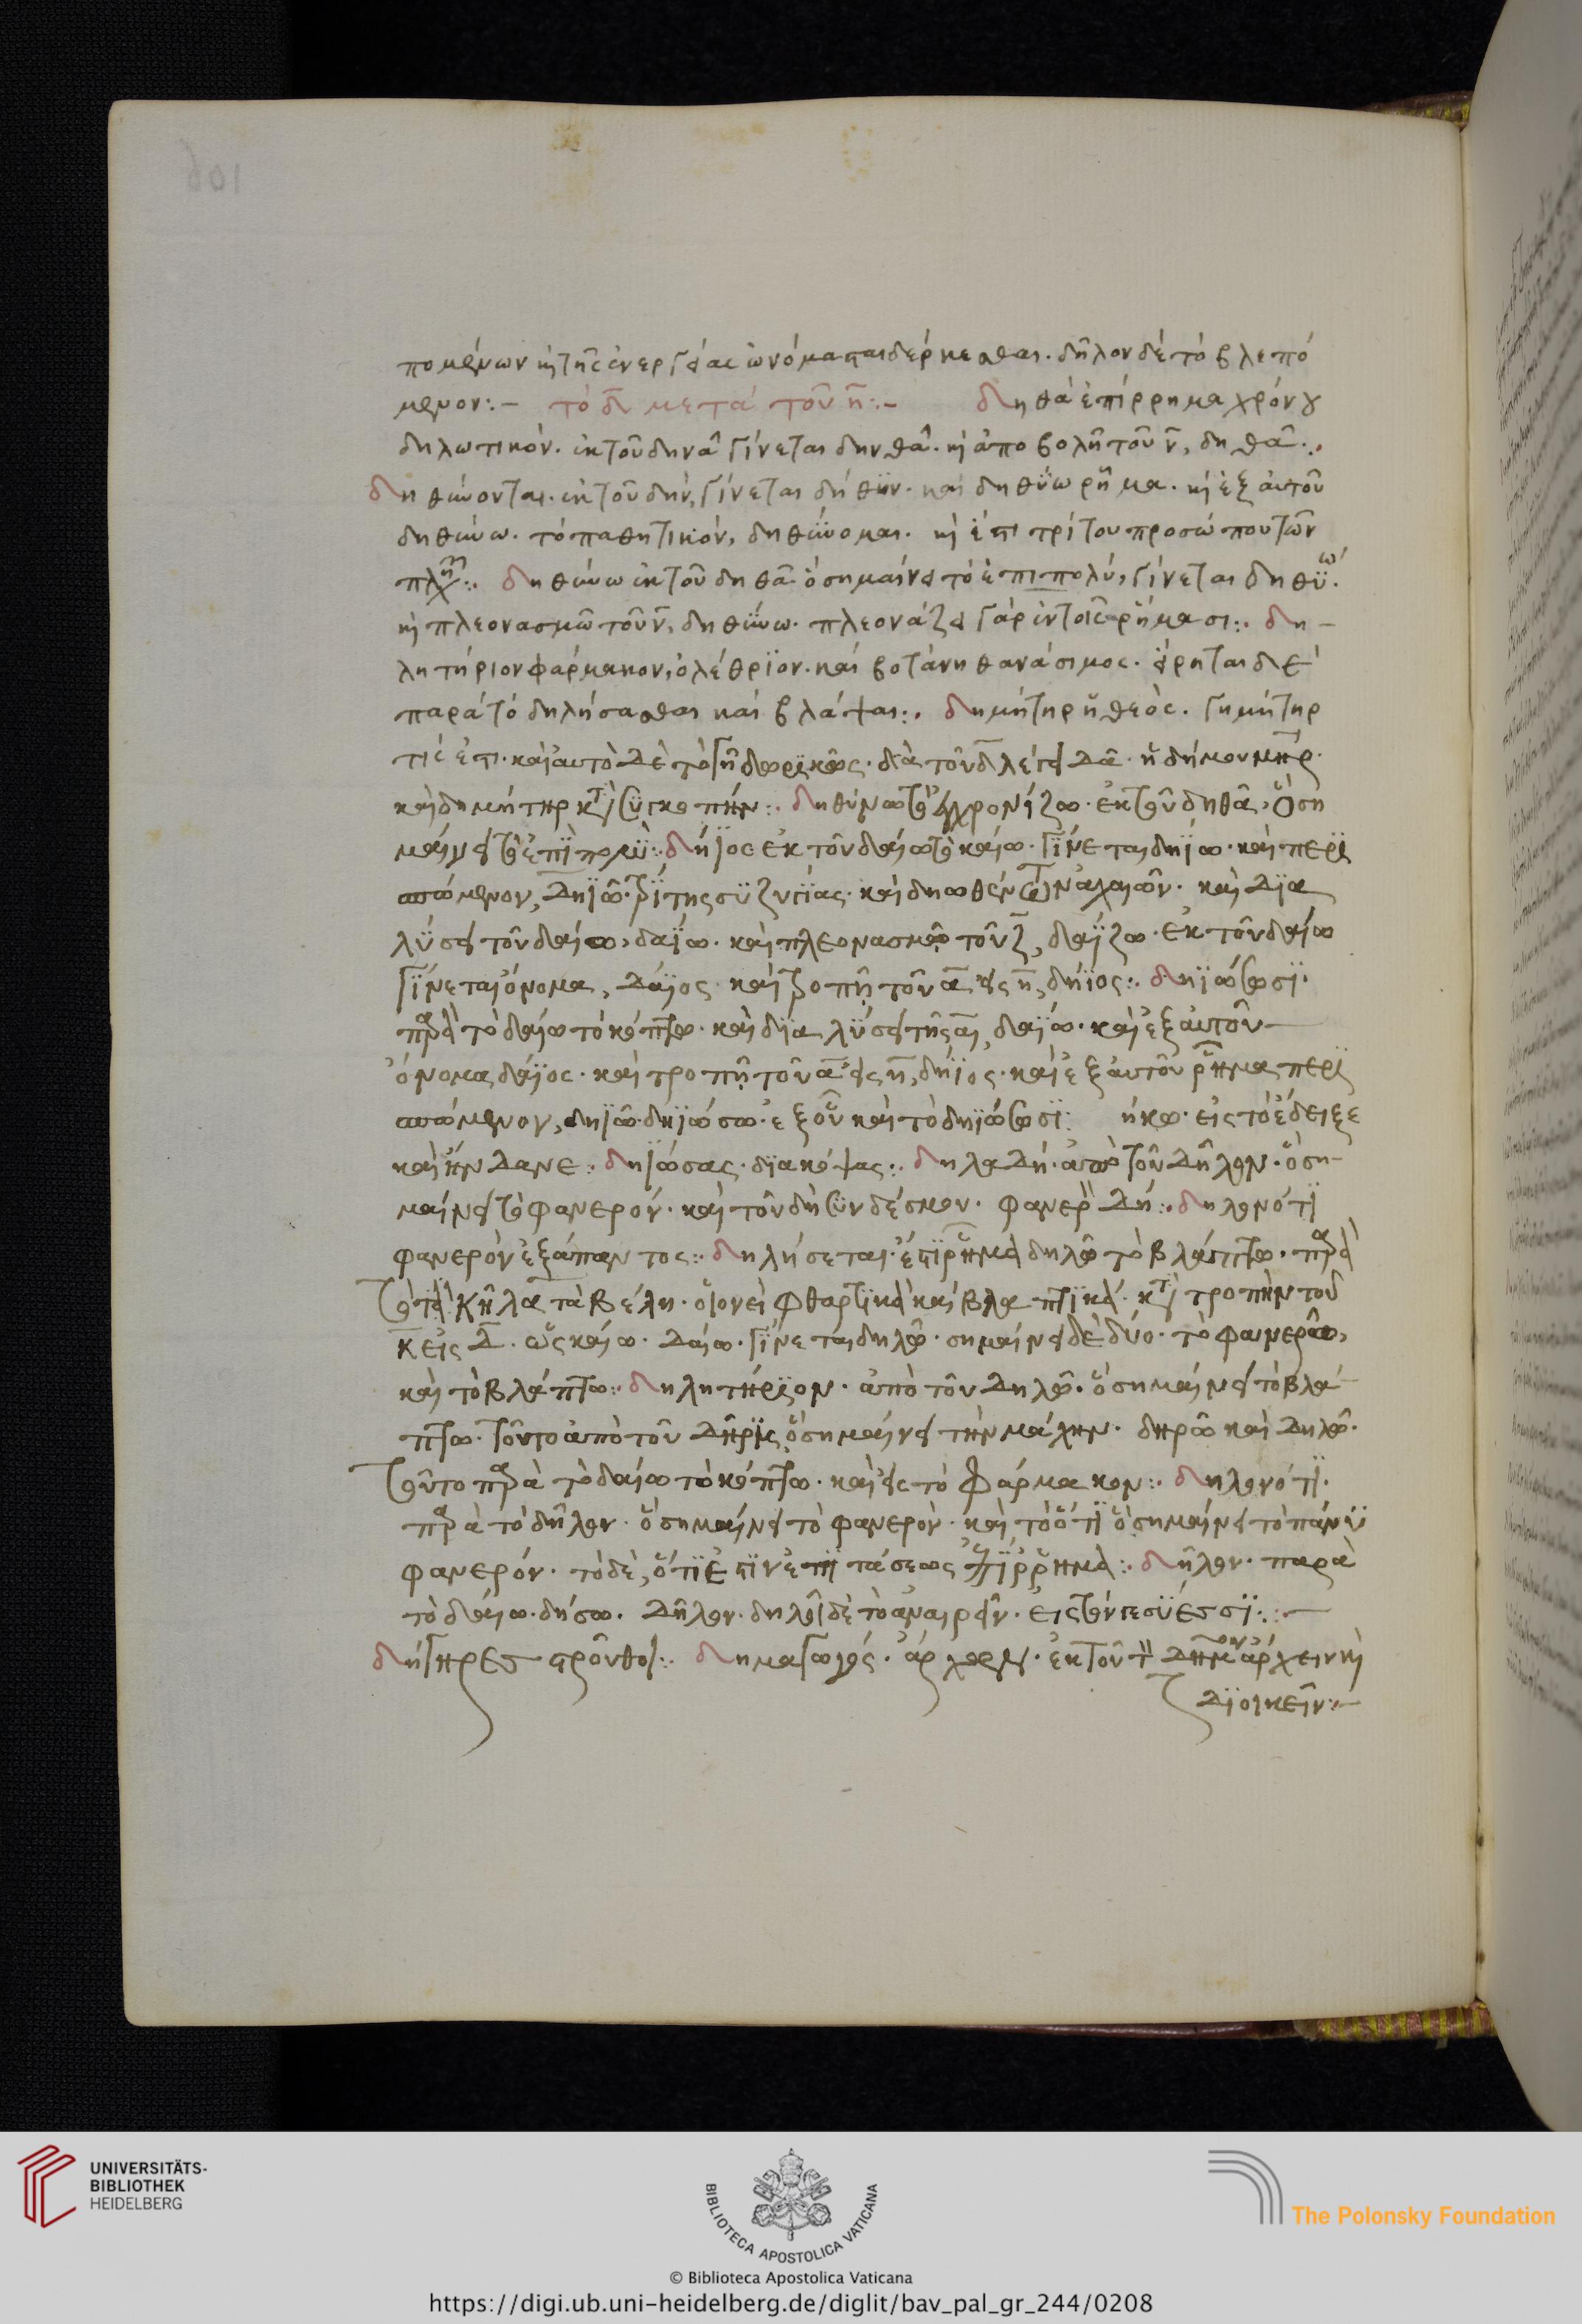 πομένων κ τῆς ἐνεργείας ὠνόμασται δέρκεσθαι. δῆλον δὲ τὸ βλεπό
μενον:- τὸ δ μετὰ τοῦ η:- δηθὰ ἐπίρρημα χρόνου
δηλωτικόν. ἐκ τοῦ δηνὰ γίνεται δηνθά. κ ἀποβολῆ τοῦ ν, δηθά:.
δηθύνονται. ἐκ τοῦ δήν, γίνεται δηθύν. καὶ δηθύω ρῆμα. κ ἐξ αὐτοῦ
δηθύνω. τὸ παθητικόν, δηθύνομαι. κ ἐπὶ τρίτου προσώπου τῶν
πλη:. δηθύνω ἐκ τοῦ δηθὰ ὁ σημαίνει τὸ ἐπιπολύ, γίνεται δηθύω.
κ πλεονασμῶ τοῦ ν, δηθύνω. πλεονάζει γὰρ ἐν τοῖς ρήμασι:. δη-
λητήριον φάρμακον, ὀλέθριον. καὶ βοτάνη θανάσιμος. εἴρηται δὲ
παρὰ τὸ δηλήσασθαι καὶ βλάψαι:. δημήτηρ ἡ θεός. γημήτηρ
τίς ἐστι. καὶ αὐτὸ δὲ τὸ γῆ δωρικῶς. διὰ τοῦ δ λέγει δᾶ. ἡ δήμου μηρ.
καὶ δημήτηρ κτ συγκοπήν:. δηθύνω τὸ ἐγχρονίζω. ἐκ τοῦ δηθά, ὃ ση
μαίνει τὸ ἐπιπολύ:. δήϊος ἐκ τοῦ δαίω τὸ καίω. γίνεται δηΐω. καὶ περι
σπώμενον, δηϊῶ. τρίτης συζυγίας. καὶ δηωθέντων ἀλαιῶν. καὶ δια
λύσει τοῦ δαίω, δαΐω. καὶ πλεονασμῶ τοῦ ζ, δαΐζω. ἐκ τοῦ δαίω
γίνεται ὄνομα, δάϊος. καὶ τροπῆ τοῦ α εἰς η, δήϊος:. δηϊώσωσι.
παρὰ τὸ δαίω τὸ κόπτω. καὶ διαλύσει τῆς αι, δαΐω. καὶ ἐξ αὐτοῦ
ὄνομα, δάϊος. καὶ τροπῆ τοῦ α εἰς η, δήϊος. καὶ ἐξ αὐτοῦ ρῆμα περι
σπώμενον, δηϊῶ. δηϊώσω. ἐξ οὗ καὶ τὸ δηϊώσωσι: ἥκω. εἰς τὸ ἔδειξε
καὶ ἥνδανε:. δηϊώσας. διακόψας:. δηλαδή. ἀπὸ τοῦ δῆλον. ὃ ση-
μαίνει τὸ φανερόν. καὶ τοῦ δὴ συνδέσμου. φανερ δή:. δηλονότι
φανερὸν ἐξάπαντος:. δηλήσεται. ἐστὶ ρῆμα δηλῶ τὸ βλάπτω. παρὰ
τὸ τὰ κῆλα τὰ βέλη. οἱονεὶ φθαρτικὰ καὶ βλαπτικά. κτ τροπὴν τοῦ
κ εἰς δ. ὡς καίω. δαίω. γίνεται δηλῶ. σημαίνει δὲ δύο. τὸ φανερῶ,
καὶ τὸ βλάπτω:. δηλητήριον. ἀπὸ τοῦ δηλῶ. ὃ σημαίνει τὸ βλά
πτω. τοῦτο ἀπὸ τοῦ δῆρις ὃ σημαίνει τὴν μάχην. δηρῶ καὶ δηλῶ.
τοῦτο παρὰ τὸ δαίω τὸ κόπτω. καὶ εἰς τὸ φάρμακον:. δηλονότι.
παρὰ τὸ δῆλον. ὃ σημαίνει τὸ φανερὸν. καὶ τὸ ὅτι ὃ σημαίνει τὸ πάνυ
φανερόν. τὸ δὲ, ὅτι ἐστὶν ἐπιτάσεως ἐπίρρημα:. δῆλον. παρὰ
τὸ δαίω. δήσω. δῆλον. δηλοῖ δὲ τὸ ἀναιρεῖν. εἰς τὸ νεσύεσσι:.-
δήγηρες στρουθοί:. δημαγωγός. ἄρχων. ἐκ τοῦ τ δῆμον ἄρχειν κ
διοικεῖν:-
106
UNIVERSITÄTS-
BIBLIOTHEK
HEIDELBERG
BIBLIOTECA APOSTOLICA VATICANA
The Polonsky Foundation
© Biblioteca Apostolica Vaticana
https://digi.ub.uni-heidelberg.de/diglit/bav_pal_gr_244/0208